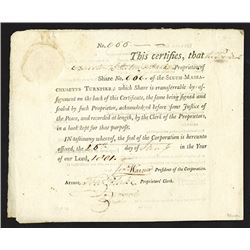 No. 606
This certifies, that
Proprietor of
Share No. 606 of the SIXTH MASSA-
CHUSETTS TURNPIKE; which Share is transferrable by as-
signment on the back of this Certificate, the same being signed and
sealed by such Proprietor, acknowledged before some Justice of
the Peace, and recorded at length, by the Clerk of the Proprietors,
in a book kept for that purpose.
IN testimony whereof, the seal of the Corporation is hereunto
affixed, the 26th day of in the Year
of our Lord, 1801.
President of the Corporation.
ATTEST, Proprietors' Clerk.